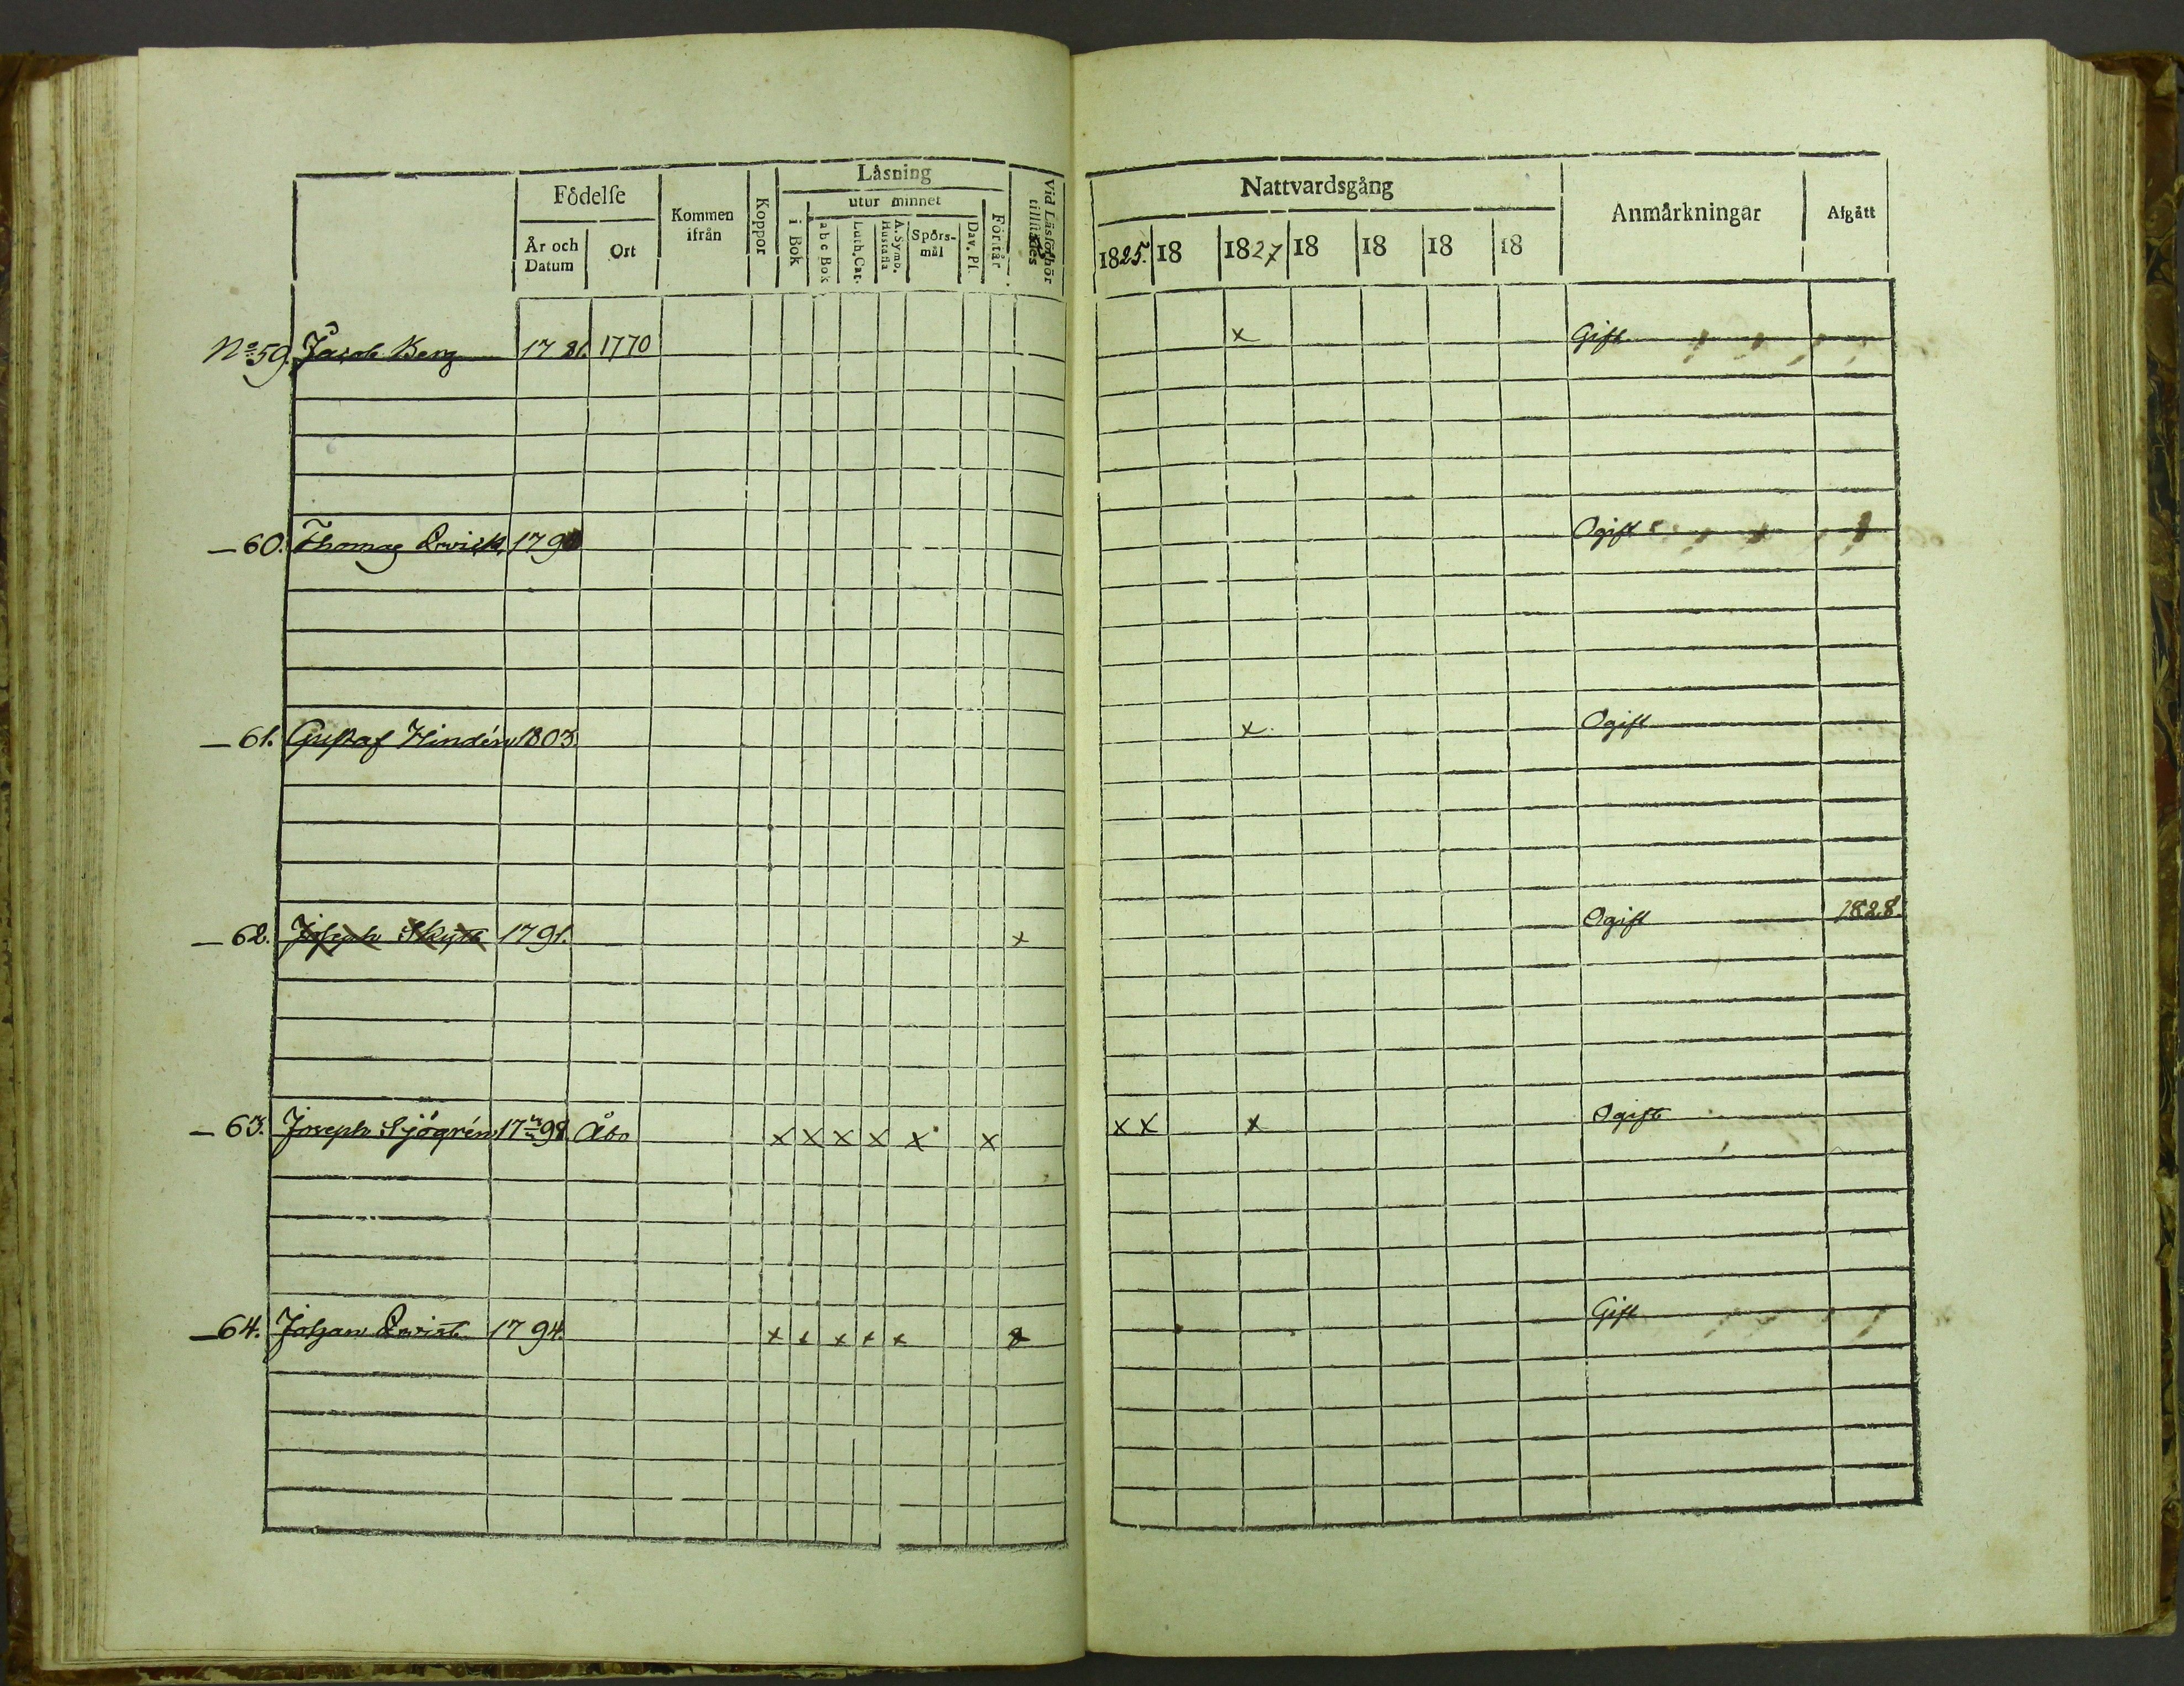 Födelse
År och Datum
Ort
Kommen ifrån
Koppor
Läsning
i Bok
utur minnet
abc Bok
Luth. Cat.
A. Symb. Hustafla
Spörs-mål
Dav. Ps.
Förstår
Vid Läsförhör tillstädes
Nattvardsgång
1825. 18 1827 18 18 18 18
Anmärkningar
Afgått
No 59. Jacob Berg 1781. 1770 x Gift
— 60. Thomas Qwick 179 Ogift
— 61. Gustaf Hindén 1803. x Ogift
— 62. Joseph Skytt 1791. x Ogift 1828.
— 63. Joseph Sjögrén 1798 Åbo x x x x x x x x x Ogift
— 64. Johan Qwist 1794. x x x x x Gift